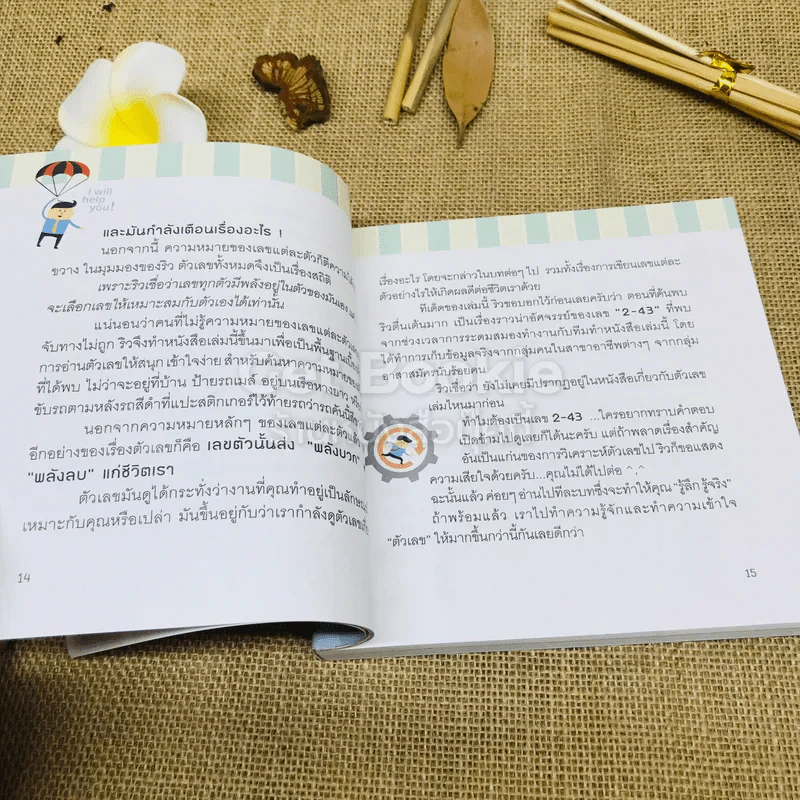 I will
help
you!
และมันกำลังเตือนเรื่องอะไร !
นอกจากนี้ ความหมายของเลขแต่ละตัวก็ตีความ
ขวาง ในมุมมองของริว ตัวเลขทั้งหมดจึงเป็นเรื่องสถิติ
เพราะริวเชื่อว่าเลขทุกตัวมีพลังอยู่ในตัวของมันเอง
จะเลือกเลขให้เหมาะสมกับตัวเองได้เท่านั้น
แน่นอนว่าคนที่ไม่รู้ความหมายของเลขแต่ละตัว
จับทางไม่ถูก ริวจึงทำหนังสือเล่มนี้ขึ้นมาเพื่อเป็นพื้นฐาน
การอ่านตัวเลขให้สนุก เข้าใจง่าย สำหรับค้นหาความหมาย
ที่ได้พบ ไม่ว่าจะอยู่ที่บ้าน ป้ายรถเมล์ อยู่บนเรือหางยาว
ขับรถตามหลังรถสีดำที่แปะสติกเกอร์ไว้ท้ายรถว่ารถคันนี้
นอกจากความหมายหลักๆ ของเลขแต่ละตัวแล้ว
อีกอย่างของเรื่องตัวเลขก็คือ เลขตัวนั้นส่ง "พลังบวก"
"พลังลบ" แก่ชีวิตเรา
ตัวเลขมันดูได้กระทั่งว่างานที่คุณทำอยู่เป็นลักษณะ
เหมาะกับคุณหรือเปล่า มันขึ้นอยู่กับว่าเรากำลังดูตัวเลข
14
เรื่องอะไร โดยจะกล่าวในบทต่อๆ ไป รวมทั้งเรื่องการเขียนเลขแต่ละ
ตัวอย่างไรให้เกิดผลดีต่อชีวิตเราด้วย
ทีเด็ดของเล่มนี้ ริวขอบอกไว้ก่อนเลยครับว่า ตอนที่ค้นพบ
ริวตื่นเต้นมาก เป็นเรื่องราวน่าอัศจรรย์ของเลข "2-43" ที่พบ
จากช่วงเวลาการระดมสมองทำงานกับทีมทำหนังสือเล่มนี้ โดย
ได้ทำการเก็บข้อมูลจริงจากกลุ่มคนในสาขาอาชีพต่างๆ จากกลุ่ม
อาสาสมัครนับร้อยคน
ริวเชื่อว่า ยังไม่เคยมีปรากฏอยู่ในหนังสือเกี่ยวกับตัวเลข
เล่มไหนมาก่อน
ทำไมต้องเป็นเลข 2-43 ...ใครอยากทราบคำตอบ
เปิดข้ามไปดูเลยก็ได้นะครับ แต่ถ้าพลาดเรื่องสำคัญ
อันเป็นแก่นของการวิเคราะห์ตัวเลขไป ริวก็ขอแสดง
ความเสียใจด้วยครับ...คุณไม่ได้ไปต่อ ^_^
ฉะนั้นแล้ว ค่อยๆ อ่านไปทีละบทซึ่งจะทำให้คุณ "รู้ลึกรู้จริง"
ถ้าพร้อมแล้ว เราไปทำความรู้จักและทำความเข้าใจ
"ตัวเลข" ให้มากขึ้นกว่านี้กันเลยดีกว่า
15